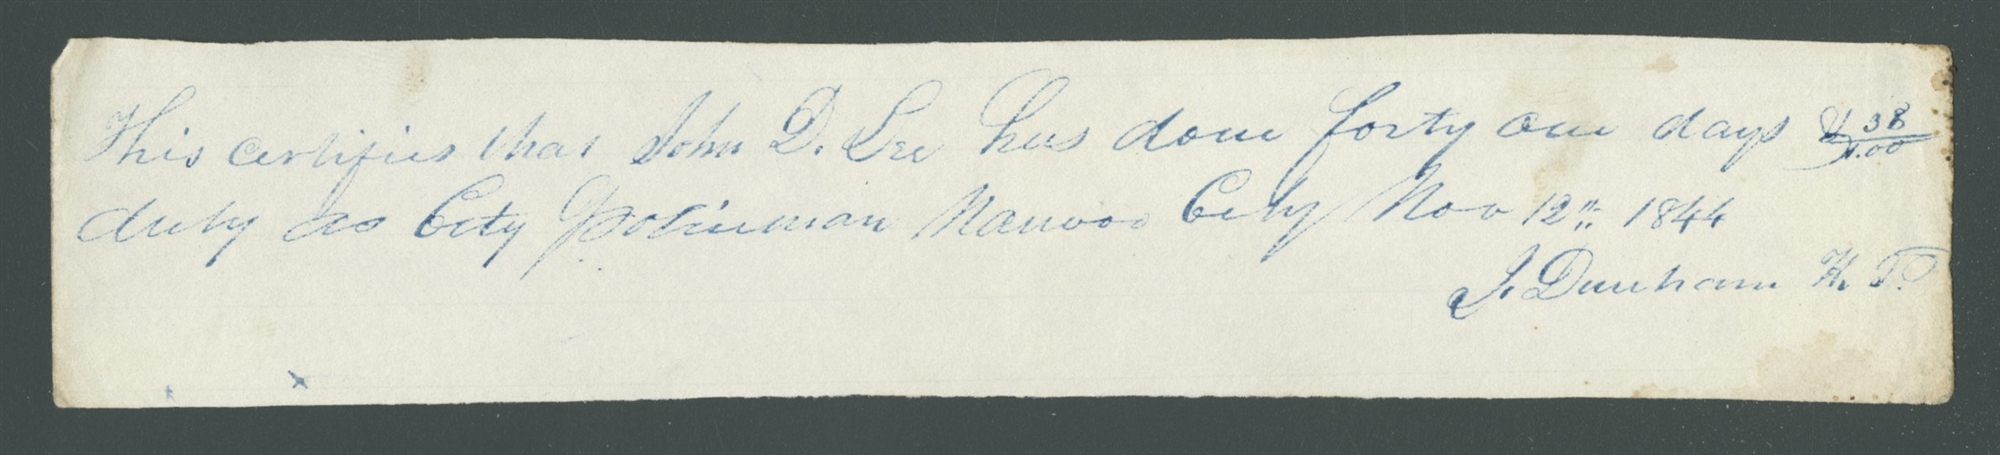 This certifies that John D. Lee has done forty one days 38
duty as City Policieman Nauvoo City Nov 12th 1844
J. Dunham H. P.